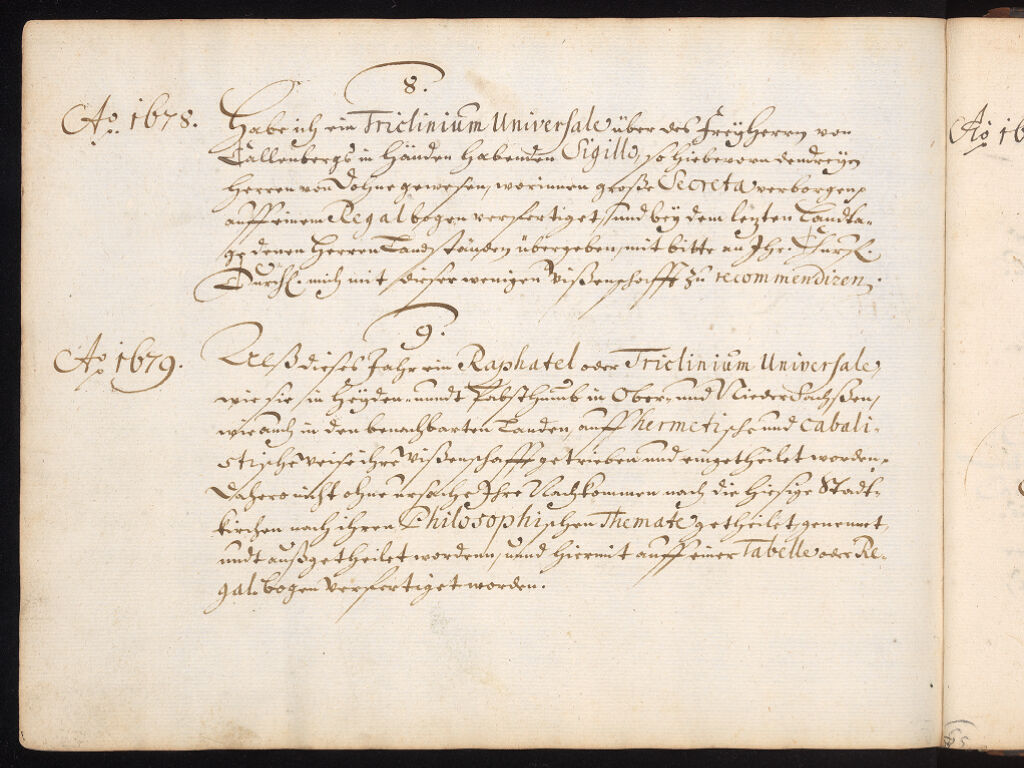 8.
Ao. 1678.
Habe ich ein Triclinium Universale über des FreyHerrn von
Callenbergs in Händen habenden Sigill, so hiebevorn den dreyen
Herren von Dohne gewesen, worinnen große Secreta verborgen,
auff einem Regal bogen verfertiget, und bey dem lezten Landta-
ge denen Herren Landständen übergeben, mit bitte an Ihr Churf.
Durchl. mich mit dieser wenigen wißenschafft zu recommendiren.
9.
Ao. 1679.
dieses Jahr ein Raphatel oder Triclinium Universale,
wie sie in Heyden- unndt Pabsthumb in Ober- und Nieder Sachßen,
wie auch in den benachbarten Landen, auff hermetische und Cabali-
stische weise ihre wißenschafft getrieben und eingetheilet worden,
Dahero nicht ohne ursache Ihre Nachkommen nach die hiesige Stadt-
kirchen nach ihren Philosophischen Themate getheilet, genennet,
undt außgetheilet worden, unnd hiermit auff einer Tabelle oder Re-
gal bogen verfertiget worden.
Ao. 16